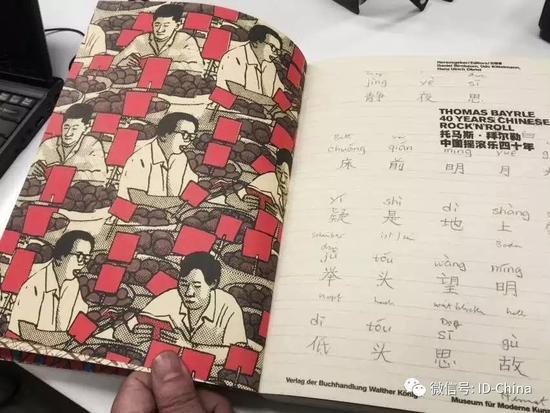 Herausgeber/Editors/出版者
Daniel Birnbaum, Udo Kittelmann,
Hans Ulrich Obrist
jìng yè sī
静 夜 思
THOMAS BAYRLE
40 YEARS CHINESE
ROCK'N'ROLL
托马斯·拜尔勒
中国摇滚乐四十年
Bett
chuáng qián míng yuè
床 前 明 月
yí shì dì shàng
疑 是 地 上
Boden
jǔ tóu wàng míng
举 头 望 明
kopf hoch hell
dī tóu sī gù
低 头 思 故
Heimat
Verlag der Buchhandlung Walther König
Museum für Moderne
微信号: ID-China